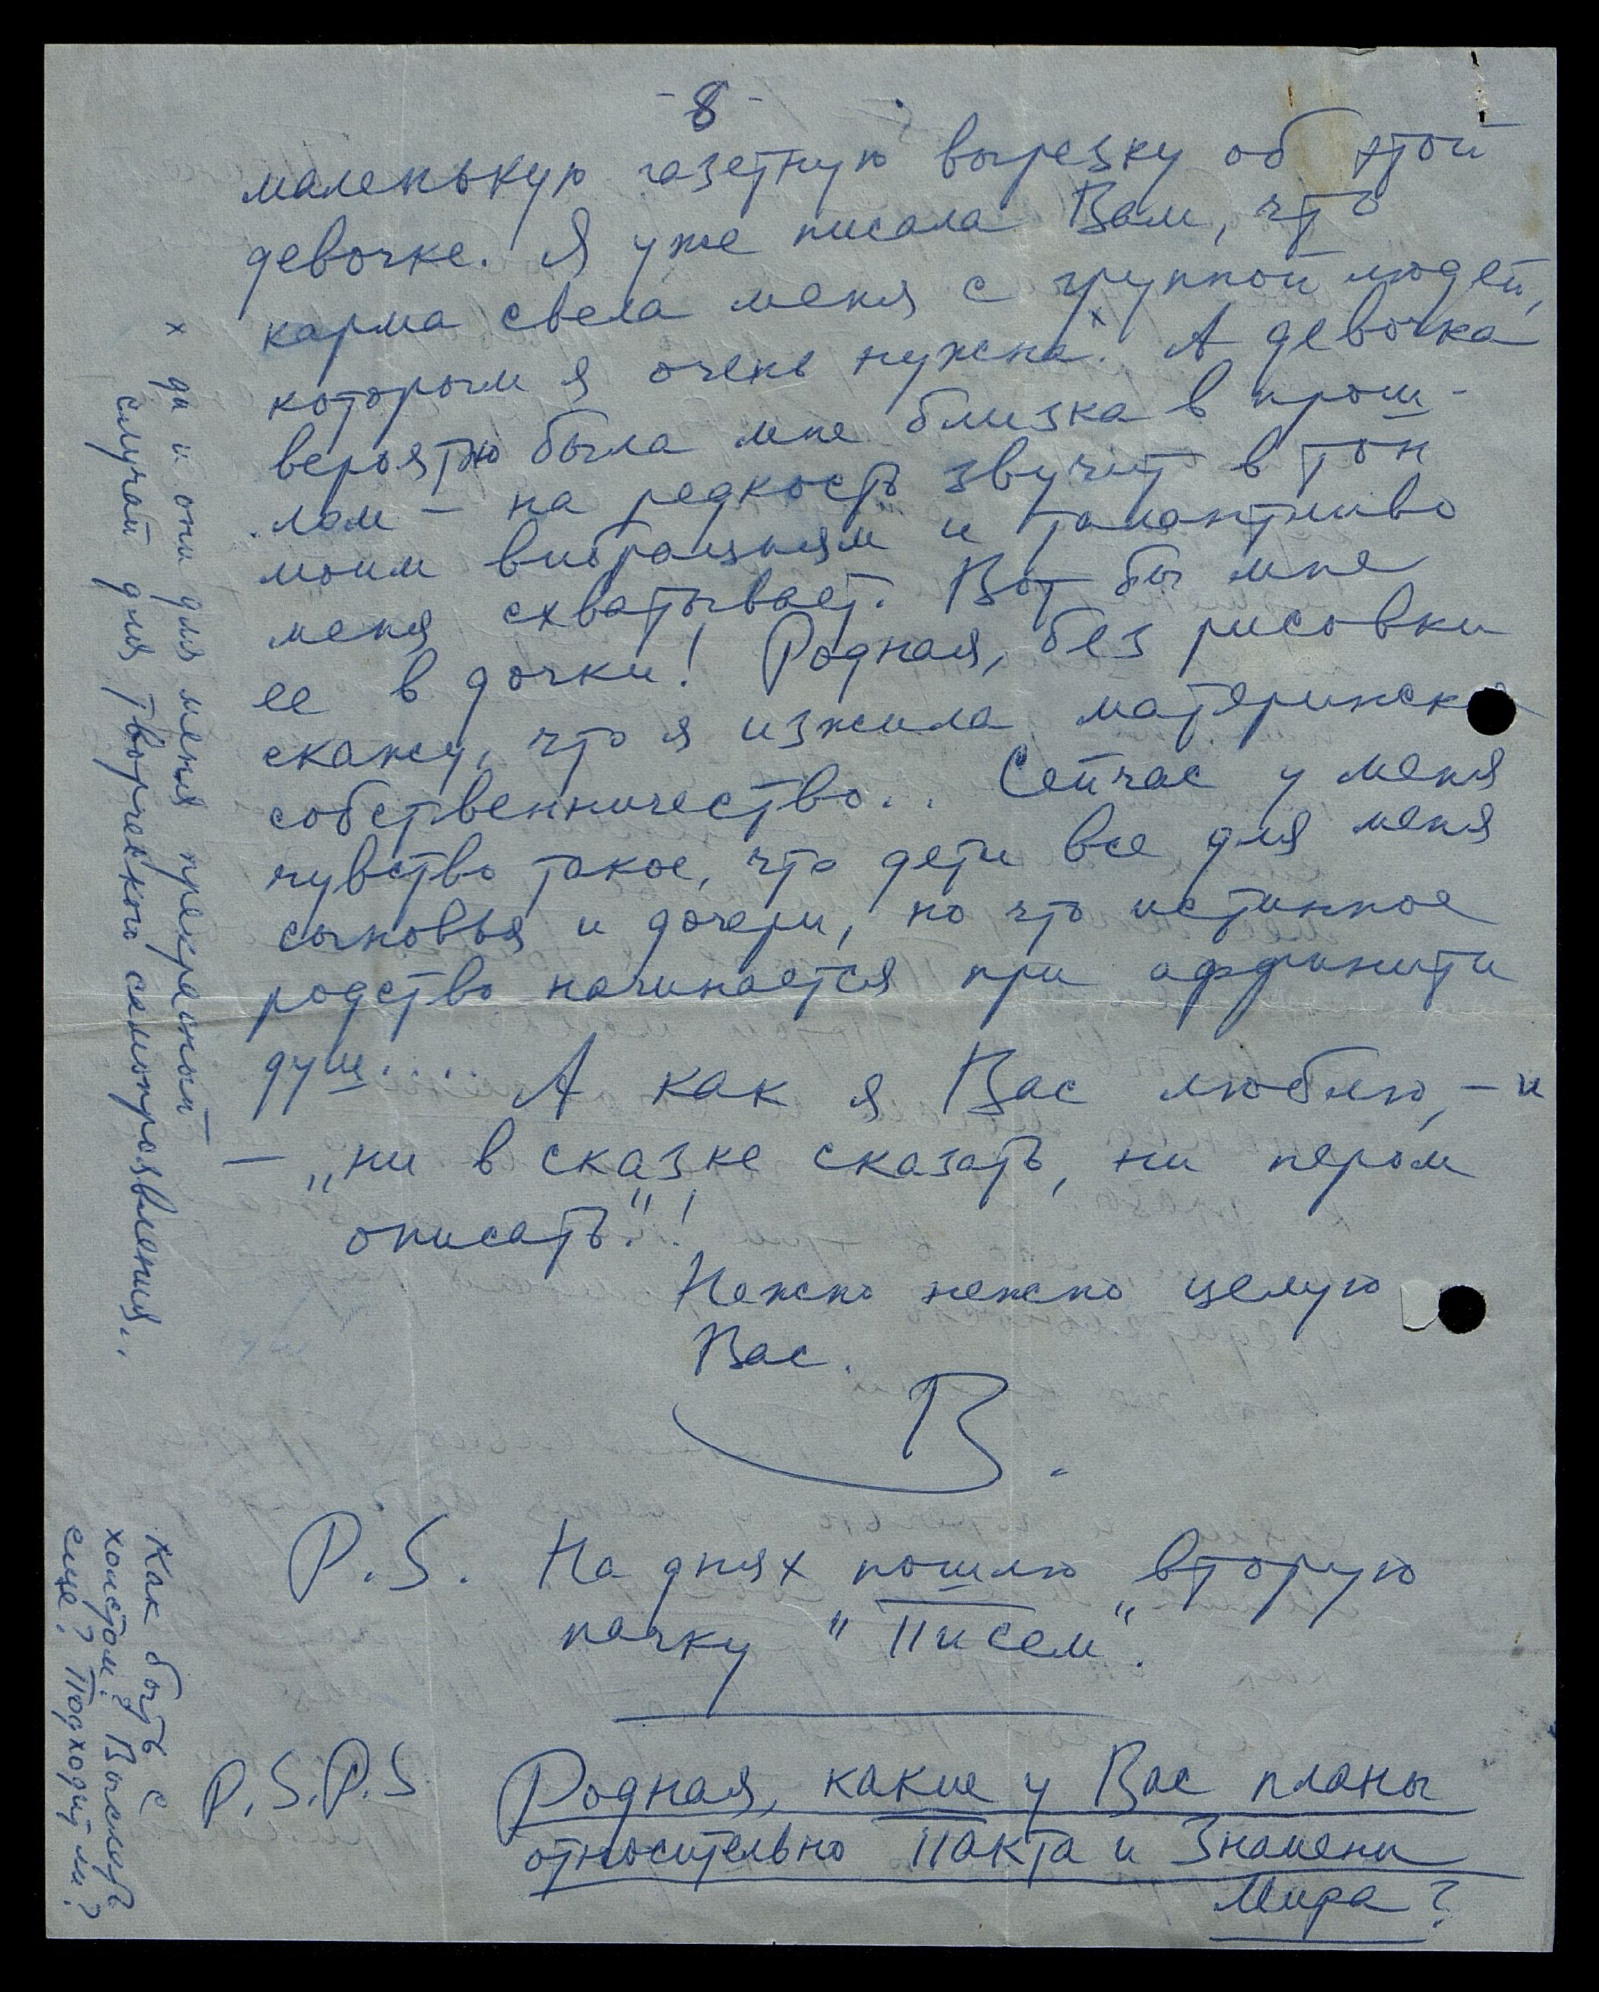 - 8 -
маленькую газетную вырезку об этой
девочке. Я уже писала Вам, что
карма свела меня с группой людей,
которым я очень нужна.ˣ А девочка
вероятно была мне близка в прош-
лом – на редкость звучит в тон
моим вибрациям и талантливо
меня схватывает. Вот бы мне
ее в дочки! Родная, без рисовки
скажу, что я изжила материнско
собственничество... Сейчас у меня
чувство такое, что дети все для меня
сыновья и дочери, но что истинное
родство начинается при аффинити
душ..... А как я Вас люблю, – и
– „ни в сказке сказать, ни перóм
описать"!!
Нежно нежно целую
Вас.
В.
P.S. На днях пошлю вторую
пачку "Писем".
P.S.P.S Родная, какие у Вас планы
относительно Пакта и Знамени
Мира?
х да и они для меня прекрасный
случай для творческого самопроявления..
Как быть с
холстом? Выслать
еще? Подходит ли?